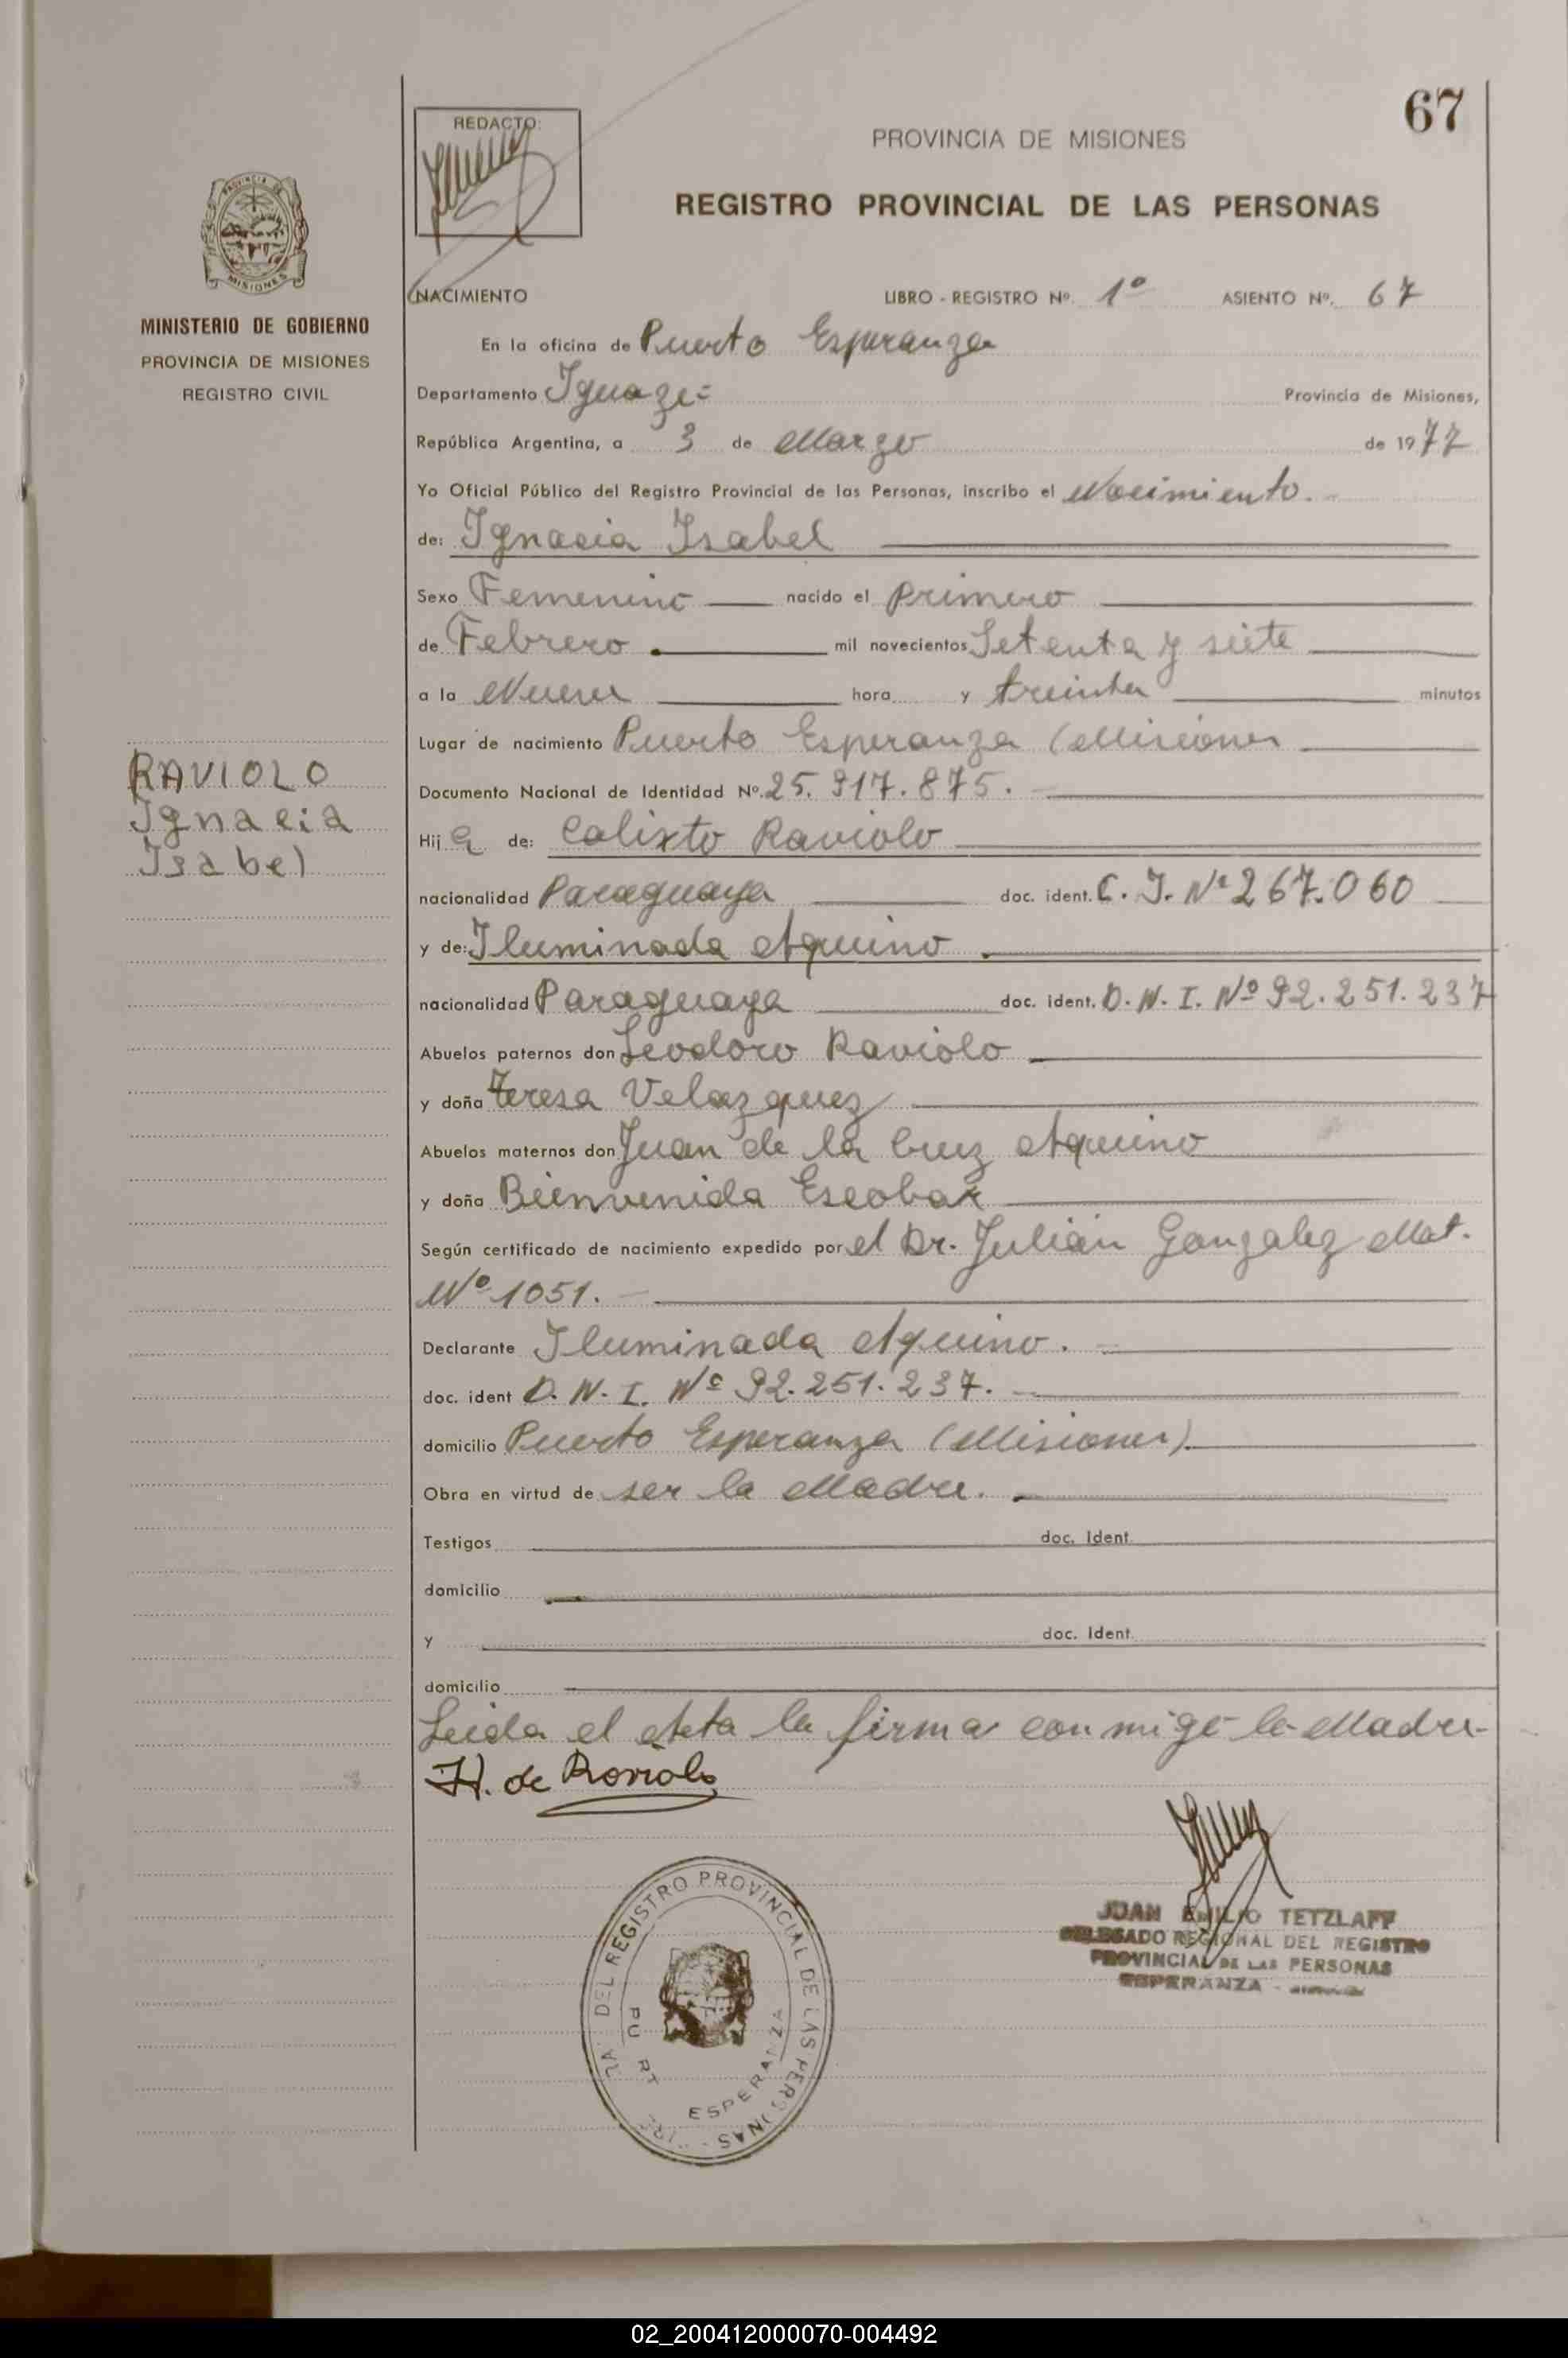 67
REDACTO:
PROVINCIA DE MISIONES
REGISTRO PROVINCIAL DE LAS PERSONAS
PROVINCIA DE
MISIONES
MINISTERIO DE GOBIERNO
PROVINCIA DE MISIONES
REGISTRO CIVIL
NACIMIENTO LIBRO - REGISTRO Nº. 1º ASIENTO Nº. 67
En la oficina de Puerto Esperanza
Departamento Iguazú Provincia de Misiones,
República Argentina, a 3 de Marzo de 1977
Yo Oficial Público del Registro Provincial de las Personas, inscribo el Nacimiento.
de: Ignacia Isabel
Sexo Femenino nacido el primero
de Febrero mil novecientos Setenta y siete
a la Nueve hora y treinta minutos
Lugar de nacimiento Puerto Esperanza (Misiones
RAVIOLO
Ignacia
Isabel
Documento Nacional de Identidad Nº. 25.917.875.
Hij a de: Calixto Raviolo
nacionalidad Paraguaya doc. ident. C. I. Nº 267.060
y de: Iluminada Aquino
nacionalidad Paraguaya doc. ident. D. N. I. Nº 92.251.237
Abuelos paternos don Leodoro Raviolo
y doña Teresa Velazquez
Abuelos maternos don Juan de la Cruz Aquino
y doña Bienvenida Escobar
Según certificado de nacimiento expedido por el Dr. Julián Gonzalez Mat.
Nº 1051.
Declarante Iluminada Aquino.
doc. ident D. N. I. Nº 92.251.237.
domicilio Puerto Esperanza (Misiones)
Obra en virtud de ser la Madre.
Testigos doc. Ident.
domicilio
y doc. Ident.
domicilio
Leida el Acta la firma conmigo la Madre
H. de Raviolo
JUAN EMILIO TETZLAFF
DELEGADO REGIONAL DEL REGISTRO
PROVINCIAL DE LAS PERSONAS
ESPERANZA -
DEL REGISTRO PROVINCIAL DE LAS PERSONAS
ESPERANZA
02_200412000070-004492